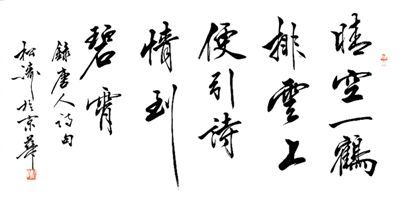 晴空一鶴
排雲上
便引詩
情到
碧霄
錄唐人詩句
松濤於京華